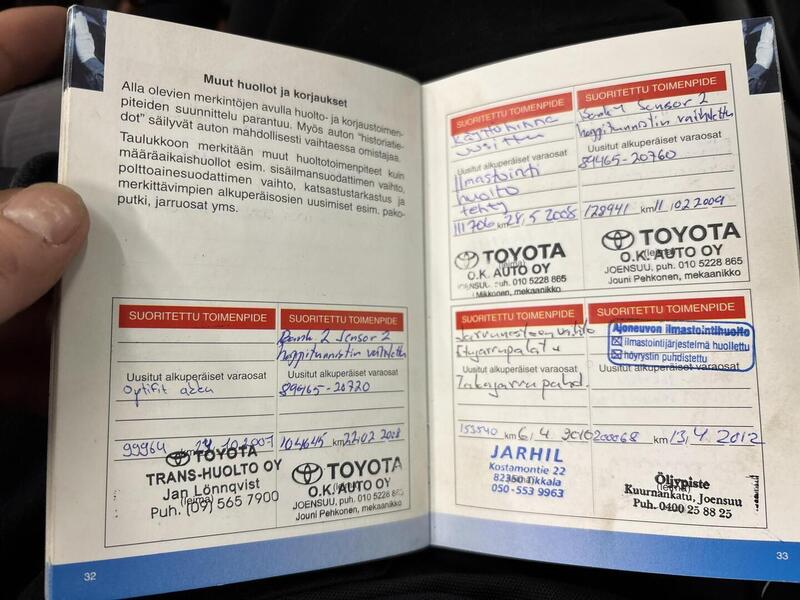 Muut huollot ja korjaukset
Alla olevien merkintöjen avulla huolto- ja korjaustoimen-
piteiden suunnittelu parantuu. Myös auton "historiatie-
dot" säilyvät auton mahdollisesti vaihtaessa omistajaa.
Taulukkoon merkitään muut huoltotoimenpiteet kuin
määräaikaishuollot esim. sisäilmansuodattimen vaihto,
polttoainesuodattimen vaihto, katsastustarkastus ja
merkittävimpien alkuperäisosien uusimiset esim. pako-
putki, jarruosat yms.
SUORITETTU TOIMENPIDE
Uusitut alkuperäiset varaosat
Optifit akku
99964 km 24.10.2007
TOYOTA
TRANS-HUOLTO OY
(leima)
Jan Lönnqvist
Puh. (09) 565 7900
SUORITETTU TOIMENPIDE
Bank 2 Sensor 2
happitunnistin vaihdettu
Uusitut alkuperäiset varaosat
89465-20720
104645 km 22.02 2008
TOYOTA
O.K. AUTO OY
(leima)
JOENSUU, puh. 010 5228 865
Jouni Pehkonen, mekaanikko
32
SUORITETTU TOIMENPIDE
Käyttöhihna
uusittu
Uusitut alkuperäiset varaosat
Ilmastointi
huolto
tehty
111706 km 28.5 2008
TOYOTA
(leima)
O.K. AUTO OY
JOENSUU, puh. 010 5228 865
Mikkonen, mekaanikko
SUORITETTU TOIMENPIDE
Bank 1 Sensor 2
happitunnistin vaihdettu
Uusitut alkuperäiset varaosat
89465-20760
128941 km 11.02 2009
TOYOTA
(leima)
O.K. AUTO OY
JOENSUU, puh. 010 5228 865
Jouni Pehkonen, mekaanikko
SUORITETTU TOIMENPIDE
Jarrunesteen vaihto
Etujarrupalat +
Uusitut alkuperäiset varaosat
Takajarrupalat.
153540 km 6.4 2010
JARHIL
Kostamontie 22
(leima)
050-553 9963
SUORITETTU TOIMENPIDE
Ajoneuvon ilmastointihuolto
ilmastointijärjestelmä huollettu
höyrystin puhdistettu
Uusitut alkuperäiset varaosat
200068 km 13.4 2012
Öljypiste
(leima)
Kuurnankatu, Joensuu
Puh. 0400 25 88 25
33